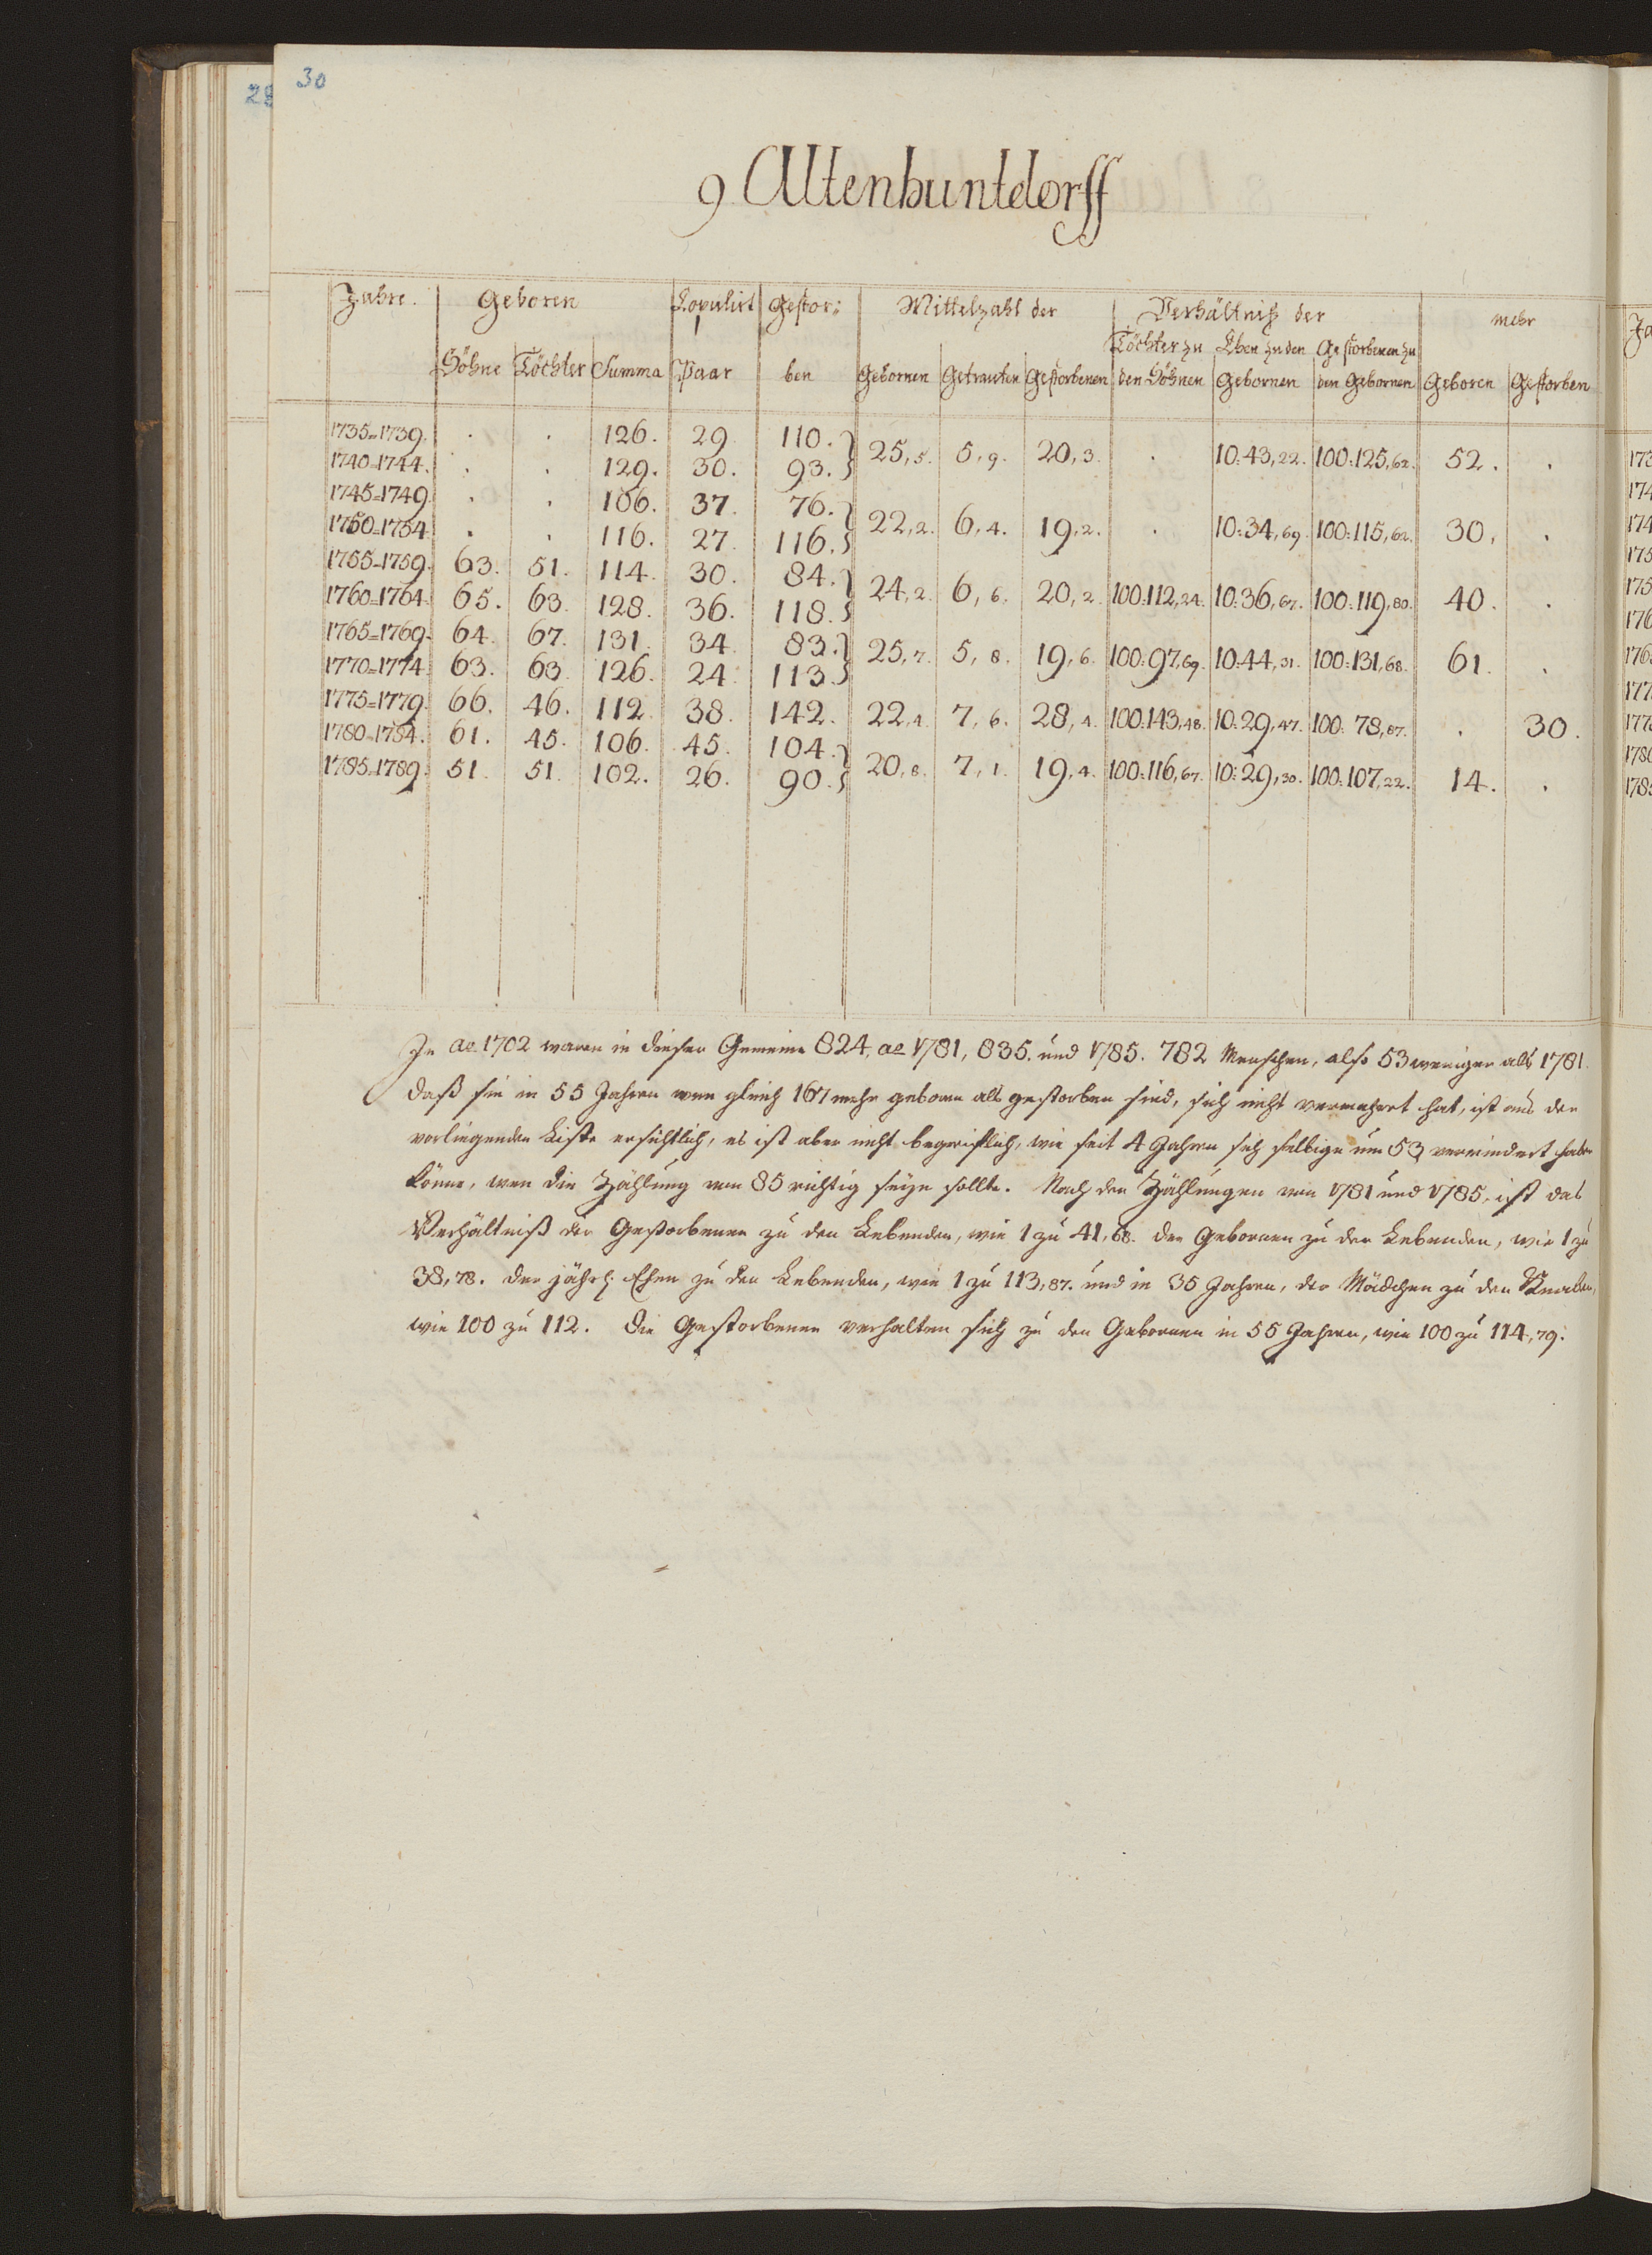 30
28
9 Altenhuntdorff
Jahre. Geboren Kopulirt Gestor= Mittelzahl der Verhältniß der mehr
Töchter zu Ehen zu den Gestorbenen zu
Söhne Töchter Summa Paar ben Gebornen Getrauten Gestorbenen den Söhnen Gebornen den Gebornen Geboren Gestorben
1735=1739. . . 126. 29. 110.
25,5. 5,9. 20,3. . 10:43,22. 100:125,62. 52. .
1740=1744. . . 129. 30. 93.
1745=1749. . . 106. 37. 76.
22,2. 6,4. 19,2. . 10:34,69. 100:115,62. 30. .
1750=1754. . . 116. 27. 116.
1755=1759. 63. 51. 114. 30. 84.
24,2. 6,6. 20,2. 100:112,24. 10:36,67. 100:119,80. 40. .
1760=1764. 65. 63. 128. 36. 118.
1765=1769. 64. 67. 131. 34. 83.
25,7. 5,8. 19,6. 100:97,69. 10:44,31. 100:131,68. 61. .
1770=1774. 63. 63. 126. 24. 113.
1775=1779. 66. 46. 112. 38. 142. 22,4. 7,6. 28,4. 100:143,48. 10:29,47. 100:78,87. . 30.
1780=1784. 61. 45. 106. 45. 104.
20,8. 7,1. 19,4. 100:116,67. 10:29,30. 100:107,22. 14. .
1785=1789. 51. 51. 102. 26. 90.
In ao 1702 waren in dieser Gemeine 824, ao 1781, 835. und 1785. 782 Menschen, also 53 weniger als 1781.
Daß sie in 55 Jahren wen gleich 167 mehr geboren als gestorben sind, sich nicht vermehret hat, ist aus der
vorliegenden Liste ersichtlich, es ist aber nicht begreiflich, wie seit 4 Jahren sich selbige um 53 vermindert haben
könne, wen die Zählung von 85 richtig seyn sollte. Nach den Zählungen von 1781 und 1785, ist das
Verhältniß der Gestorbenen zu den Lebenden, wie 1 zu 41,68. der Gebornen zu den Lebenden, wie 1 zu
38,78. der jährl. Ehen zu den Lebenden, wie 1 zu 113,87. und in 35 Jahren, der Mädchen zu den Knaben,
wie 100 zu 112. Die Gestorbenen verhalten sich zu den Gebornen in 55 Jahren, wie 100 zu 114,79.